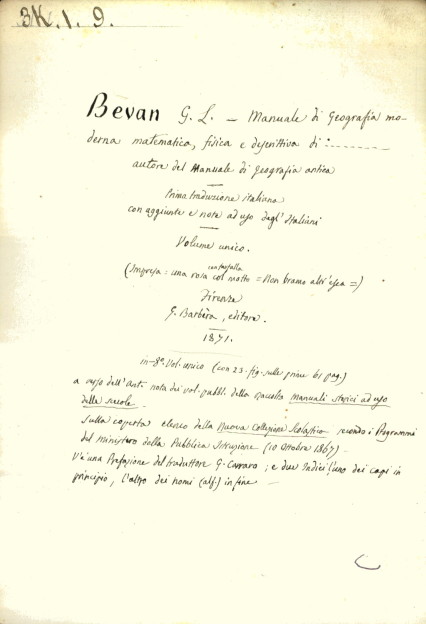 3K.1.9.
Bevan G. L. — Manuale di Geografia mo-
derna matematica, fisica e descrittiva di :..........
autore del Manuale di geografia antica
Prima traduzione italiana
con aggiunte e note ad uso degl'Italiani
Volume unico.
con farfalla
(Impresa = una rosa col motto = Non bramo altr'esca =)
Firenze
G. Barbèra, editore.
1871.
in-8º. Vol. unico (con 23. fig. sulle prime 61 pag.)
a verso dell'Ant. nota dei vol. pubbl. della raccolta manuali storici ad uso
delle scuole.
Sulla coperta elenco della Nuova Collezione Scolastica secondo i Programmi
del ministero della Pubblica Istruzione (10 Ottobre 1867) —
V'è una Prefazione del traduttore G. Carraro ; e due Indici l'uno dei capi in
principio, l'altro dei nomi (alf.) in fine —